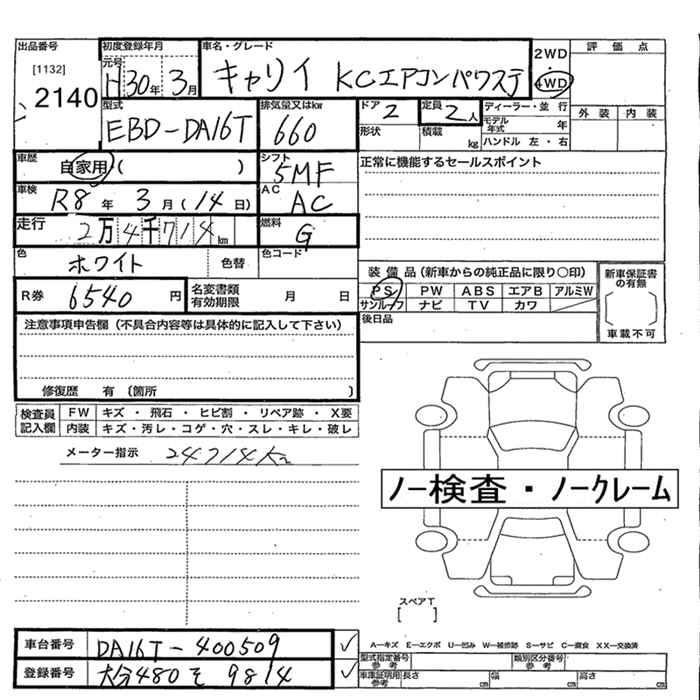 出品番号 初度登録年月 車名・グレード 2WD・4WD 評価点
[1132] 2140 元号 H30年3月 キャリイ KCエアコンパワステ
外装 内装
型式 EBD-DA16T 排気量又はkw 660 ドア 2 定員 2人 ディーラー・並行
形状 積載 kg モデル年式 年
ハンドル 左・右
車歴 自家用( ) シフト 5MF 正常に機能するセールスポイント
車検 R8年3月(14日) AC AC
走行 2万4千714km 燃料 G
色 ホワイト 色替 色コード
装備品(新車からの純正品に限り〇印) 新車保証書の有無
R券 6540円 名変書類有効期限 月 日 PS PW ABS エアB アルミW
サンルーフ ナビ TV カワ
[ ]
車載不可
後日品
注意事項申告欄(不具合内容等は具体的に記入して下さい)
修復歴 有 (箇所 )
検査員記入欄 FW キズ・飛石・ヒビ割・リペア跡・X要
内装 キズ・汚レ・コゲ・穴・スレ・キレ・破レ
メーター指示 24714Km
ノー検査・ノークレーム
スペアT
[ ]
車台番号 DA16T-400509 ✓
A−キズ E−エクボ U−凹み W−補修跡 S−サビ C−腐食 XX−交換済
型式指定番号 参考 類別区分番号 参考
登録番号 大分480そ9814 ✓ 車庫証明用参考 長さ cm 幅 cm 高さ cm